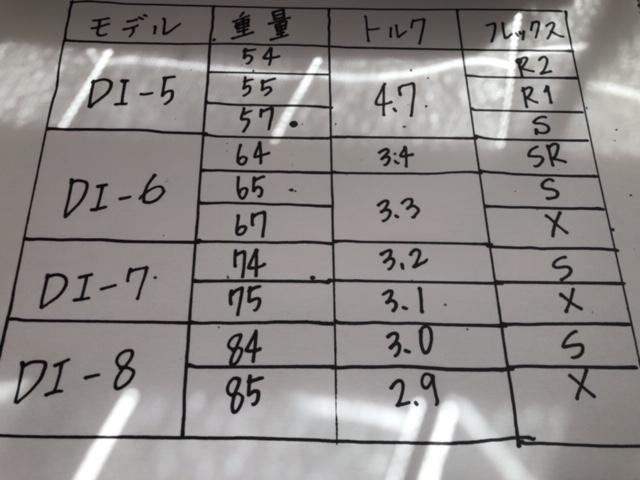 モデル 重量 トルク フレックス
DI-5 54 4.7 R2
55 R1
57 S
DI-6 64 3.4 SR
65 3.3 S
67 X
DI-7 74 3.2 S
75 3.1 X
DI-8 84 3.0 S
85 2.9 X